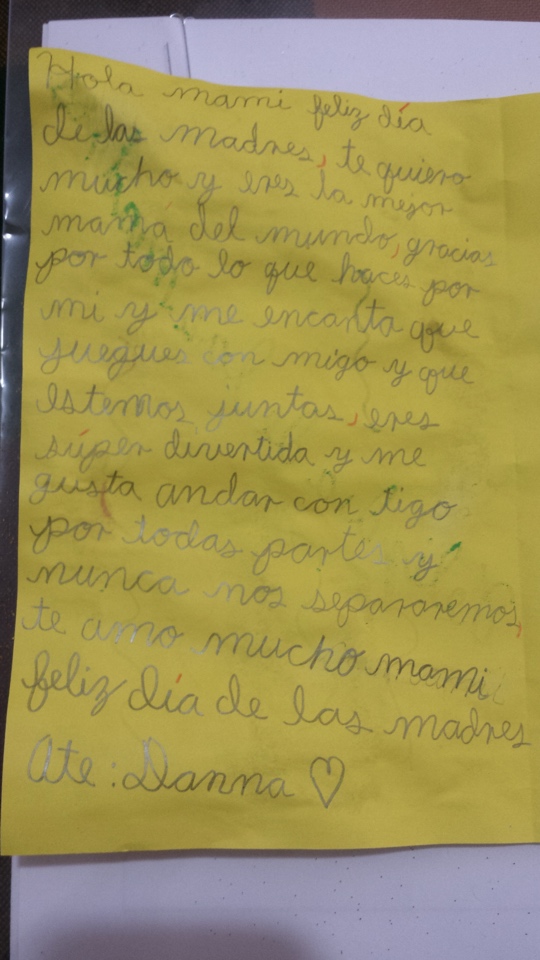 Hola mami feliz día
de las madres, te quiero
mucho y eres la mejor
mamá del mundo, gracias
por todo lo que haces por
mi y me encanta que
juegues con migo y que
estemos juntas, eres
súper divertida y me
gusta andar con tigo
por todas partes y
nunca nos separaremos,
te amo mucho mami
feliz día de las madres
Ate: Danna ♡